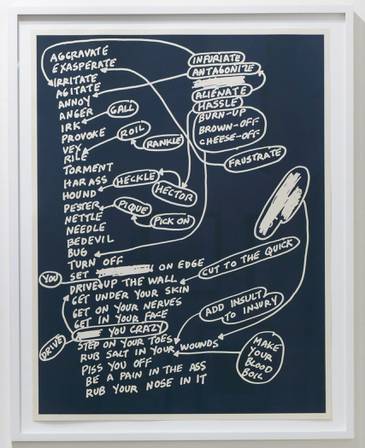 AGGRAVATE
EXASPERATE
IRRITATE
AGITATE
ANNOY
ANGER
GALL
IRK
PROVOKE
ROIL
VEX
RANKLE
RILE
TORMENT
HARASS
HECKLE
HOUND
HECTOR
PESTER
PIQUE
NETTLE
PICK ON
NEEDLE
BEDEVIL
BUG
TURN OFF
SET ON EDGE
YOU
DRIVE UP THE WALL
GET UNDER YOUR SKIN
GET ON YOUR NERVES
GET IN YOUR FACE
YOU CRAZY
DRIVE
STEP ON YOUR TOES
RUB SALT IN YOUR WOUNDS
PISS YOU OFF
BE A PAIN IN THE ASS
RUB YOUR NOSE IN IT
INFURIATE
ANTAGONIZE
ALIENATE
HASSLE
BURN-UP
BROWN-OFF
CHEESE-OFF
FRUSTRATE
CUT TO THE QUICK
ADD INSULT
TO INJURY
MAKE
YOUR
BLOOD
BOIL